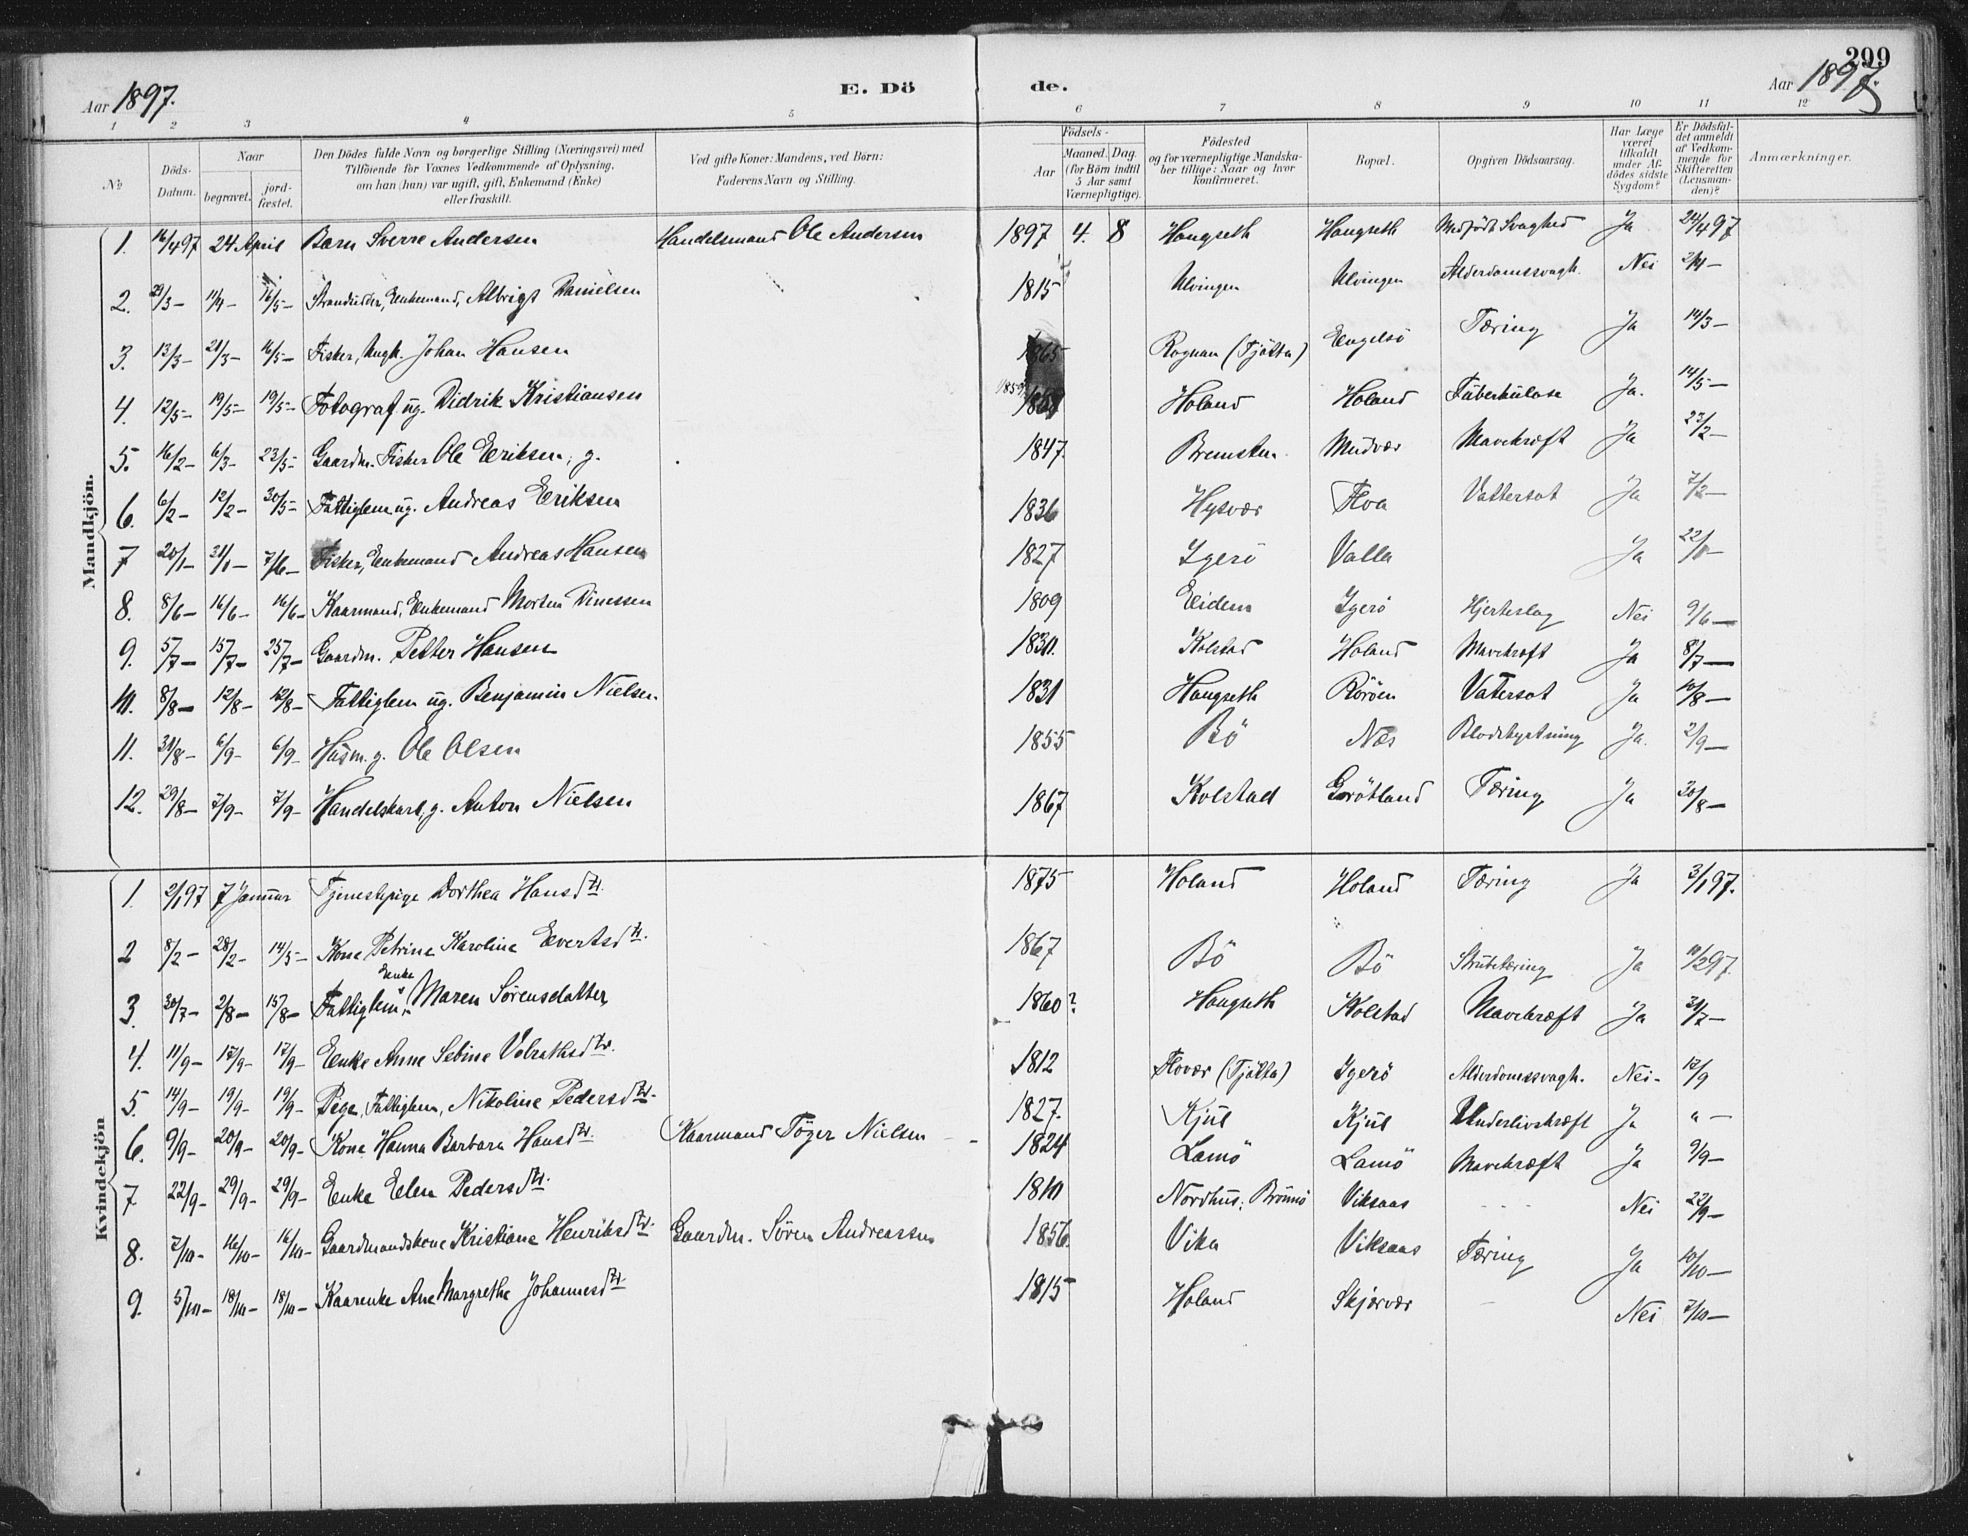 299
Aar 1897. E. Dö de. Aar 1897.
1 2 3 4 5 6 7 8 9 10 11 12
№ Döds-Datum. Naar begravet. jord-fæstet. Den Dödes fulde Navn og borgerlige Stilling (Næringsvei) med Tilföiende for Voxnes Vedkommende af Oplysning, om han (hun) var ugift, gift, Enkemand (Enke) eller fraskilt. Ved gifte Koner: Mandens, ved Börn: Faderens Navn og Stilling. Födsels- Aar Maaned. Dag. (for Börn indtil 5 Aar samt Værnepligtige). Födested og for værnepligtige Mandska-ber tillige: Naar og hvor konfirmeret. Bopæl. Opgiven Dödsaarsag. Har Læge været tilkaldt under Af-dödes sidste Sygdom? Er Dödsfal-det anmeldt af Vedkom-mende for Skifteretten (Lensman-den)? Anmærkninger.
Mandkjön.
1. 16/4 97 24 April Barn Sverre Andersen Handelsmand Ole Andersen 1897 4. 8 Haugseth Haugseth Medfödt Svaghed Ja 24/4 97
2. 29/3 – 11/4 – 16/5 – Enkemand, Albrigt Danielsen 1815 Ulvingen Ulvingen Alderdomssvagh. Nei 2/4 –
3. 13/3 – 21/3 – 16/5 – Fisker, Ungk. Johan Hansen 1865 Rognan (Tjötta) Engelsö Tæring Ja 14/3 –
4. 12/5 – 19/5 – 19/5 – Fotograf ug. Didrik Kristiansen 1859 Holand Holand Tuberkulose Ja. 14/5 –
5. 16/2 – 6/3 – 23/5 – Gaardm. Fisker Ole Eriksen, g. 1847. Bremsten Mudvær Mavekræft Ja 23/2 –
6. 6/2 – 12/2 – 30/5 – Fattiglem ug. Andreas Eriksen 1836 Hysvær Floa Vattersot Ja 7/2 –
7 20/1 – 31/1 – 7/6 – Fisker, Enkemand Andreas Hansen 1827 Igerö Valla Ja 22/1 –
8. 8/6 – 16/6 – 16/6 – Kaarmand, Enkemand Morten Dinessen 1809 Eidem Igerö Hjerteslag Nei 9/6 –
9. 5/7 – 15/7 – 25/7 – Gaardm. Petter Hansen 1830. Kolstad Holand Mavekræft Ja 8/7 –
10. 8/8 – 12/8 – 12/8 – Fattiglem ug. Benjamin Nielsen 1831 Haugseth Röröen Vatersot Ja 10/8 –
11. 31/8 – 6/9 – 6/9 – Husm. g. Ole Olsen 1855 Bö Nes Blodstyrtning Ja. 2/9 –
12. 29/8 – 7/9 – 7/9 – Handelskarl, g. Anton Nielsen 1867 Kolstad Grötland Tæring Ja 30/8 –
Kvindekjön
1. 2/1 97 7 Januar Tjenestepige Dorthea Hansdtr. 1875 Holand Holand Tæring Ja 3/1 97.
2 8/2 – 28/2 – 14/5 – Kone Petrine Karoline Evertsdtr. 1867 Bö Bö Strubetæring Ja 10/2 97.
3. 30/7 – 2/8 – 15/8 – Fattiglem, Enke Maren Sörensdatter 1860? Haugseth Kolstad Mavekræft Ja 31/7 –
4. 11/9 – 12/9 – 12/9 – Enke Anne Sebine Volrathsdtr. 1812 Flovær (Tjötta) Igerö Alderdomssvagh. Nei – 12/9
5. 14/9 – 19/9 – 19/9 – Pige, Fattiglem, Nikoline Pedersdtr. 1827. Kjul Kjul Underlivskræft Ja " –
6. 9/9 – 20/9 – 20/9 – Kone Hanna Barbara Hansdtr. Kaarmand Töger Nielsen 1824 Lamö Lamö Mavekræft Ja 9/9 –
7 22/9 – 29/9 – 29/9 – Enke Elen Pedersdtr. 1810 Nordhus, Brönnö Viksaas Nei 22/9 –
8. 7/10 – 16/10 – 16/10 – Gaardmandskone Kristiane Henriksdtr. Gaardm. Sören Andreassen 1856. Vika Viksaas Tæring Ja 10/10 –
9. 5/10 – 18/10 – 18/10 – Kaarenke Ane Margrethe Johannesdtr. 1815 Holand Skjærvær – Nei 7/10 –